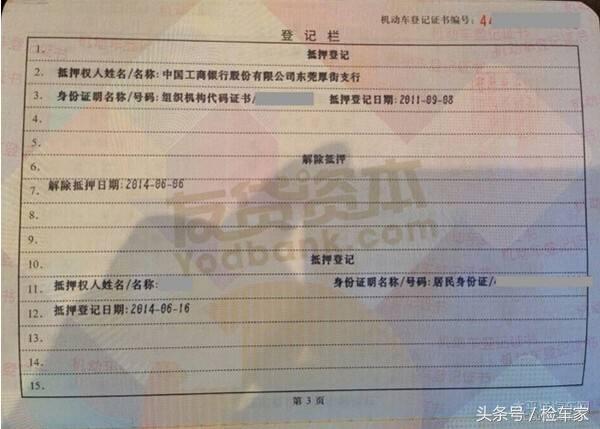 机动车登记证书编号:44
登记栏
1. 抵押登记
2. 抵押权人姓名/名称:中国工商银行股份有限公司东莞厚街支行
3. 身份证明名称/号码:组织机构代码证书/ 抵押登记日期:2011-09-08
4.
5.
6. 解除抵押
7. 解除抵押日期:2014-06-06
8.
9.
10. 抵押登记
11. 抵押权人姓名/名称: 身份证明名称/号码:居民身份证/4
12. 抵押登记日期:2014-06-16
13.
14.
15.
友贷资本
Yodbank.com
第 3 页
头条号/检车家